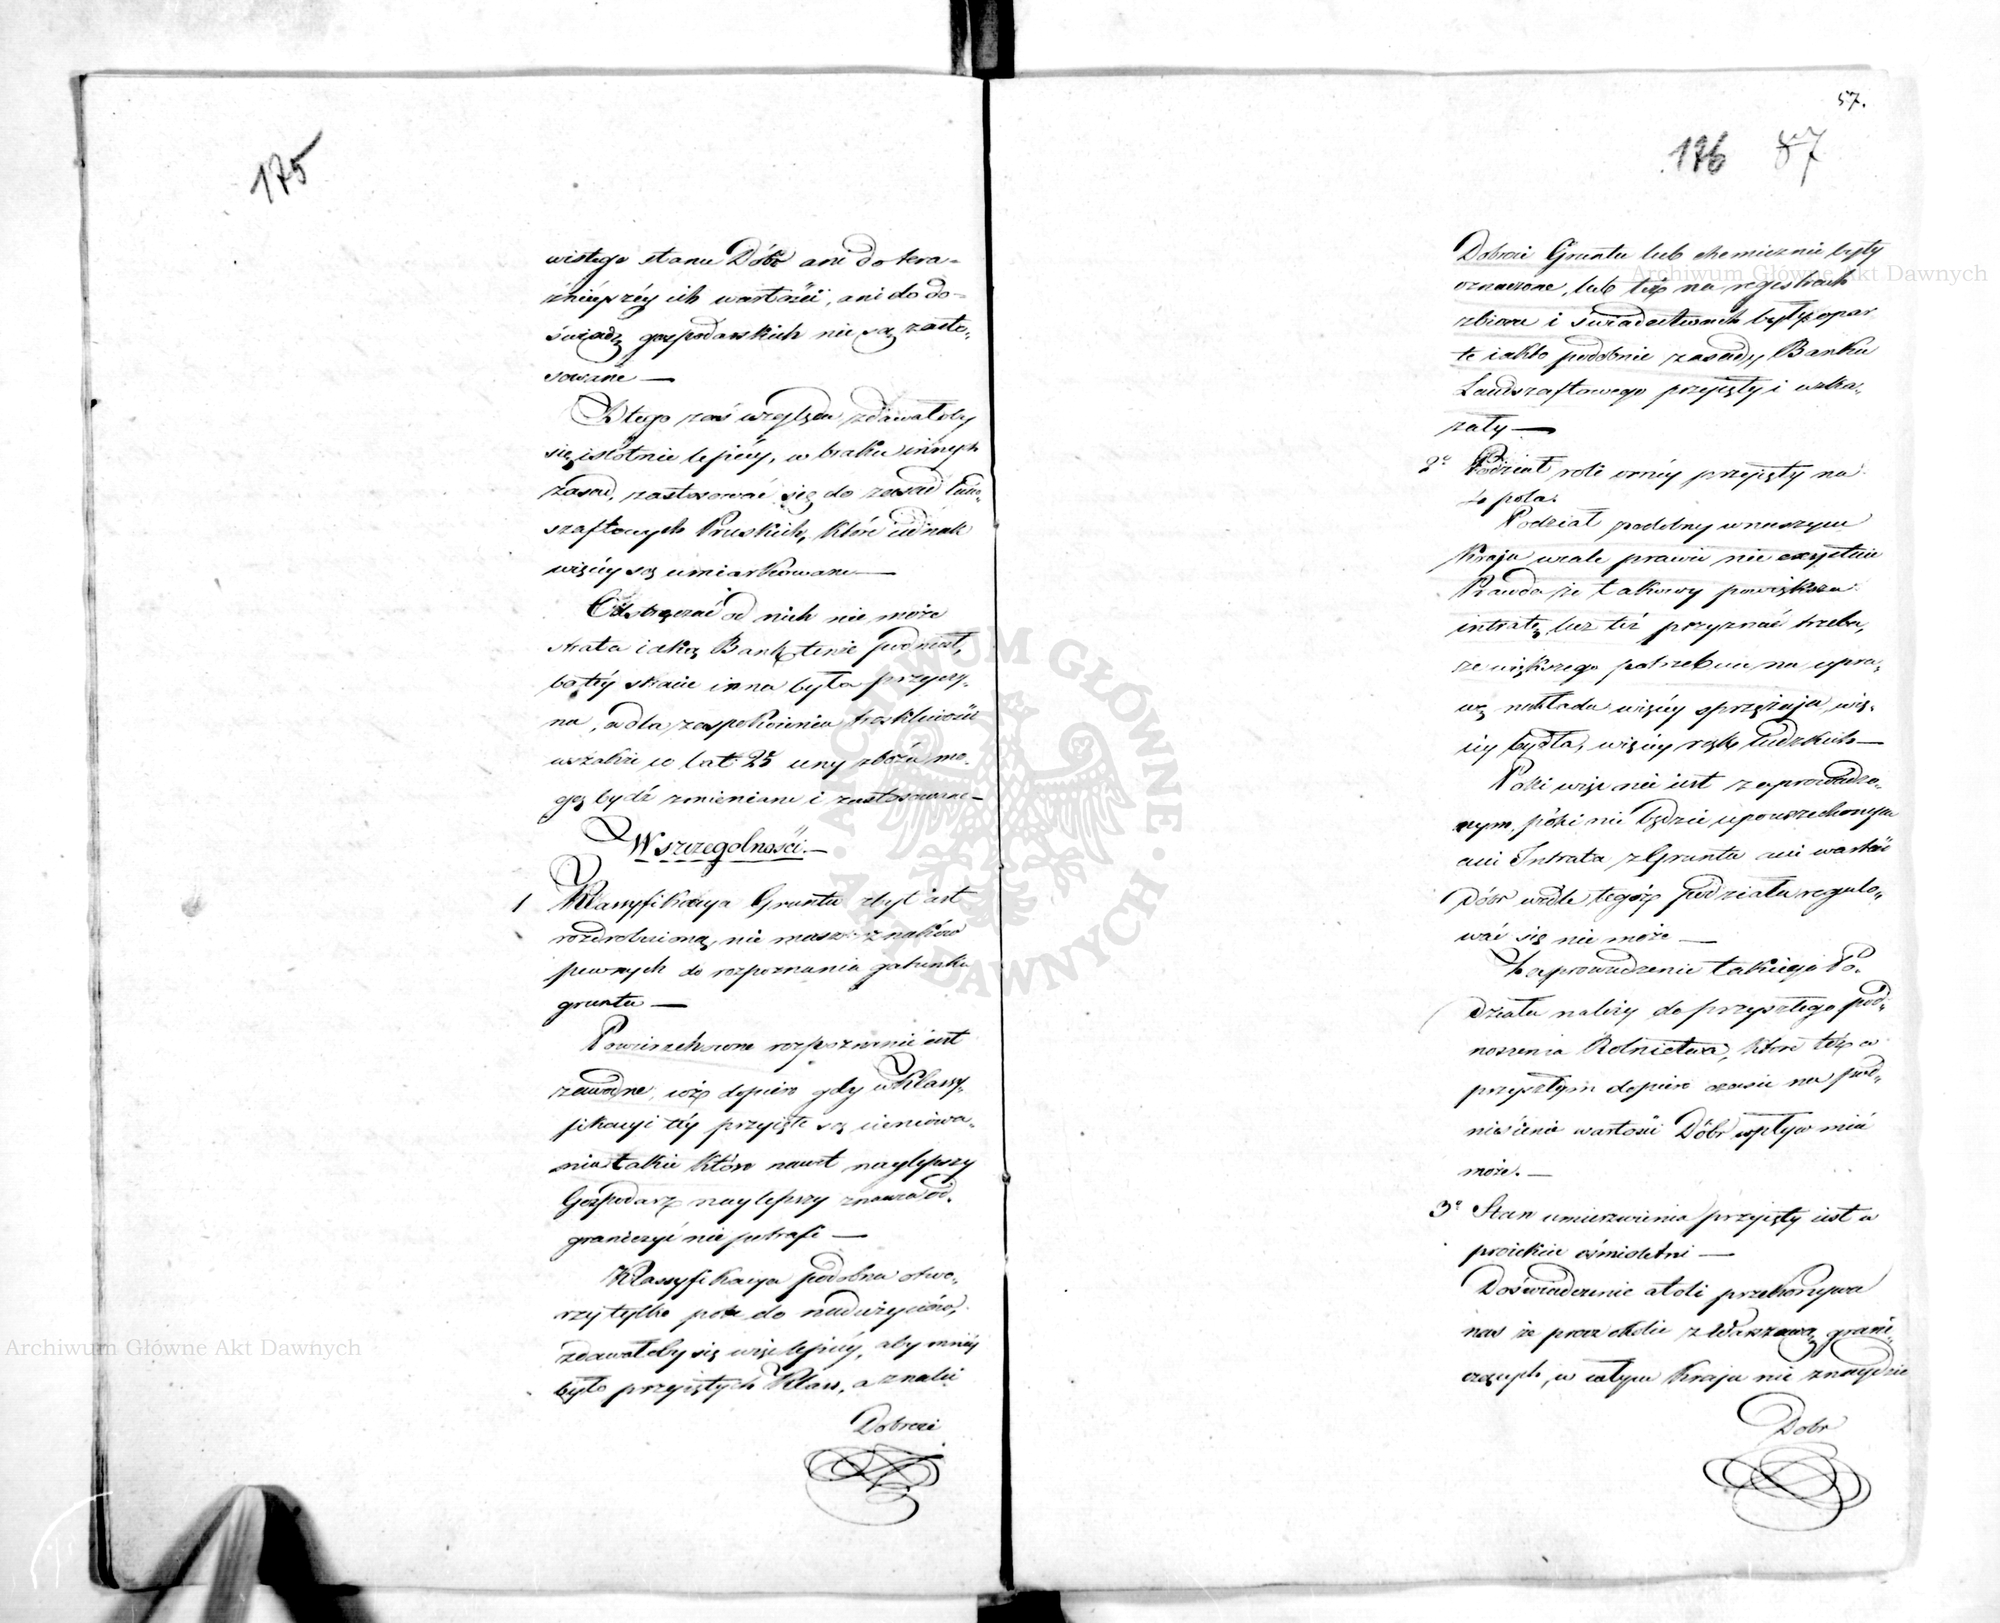 175
wistego stanu Dóbr ani do tera-
źnieyszéy ich wartości, ani do do-
świadcz gospodarskich nie są zasto-
sowane —
Z tego zaś względu zdawałoby
się istotnie lepiéy, w braku innych
zasad, zastosować się do zasad Land-
szaftowych Pruskich, które iednak
więcéy są umiarkowane —
Odstręczać od nich nie może
strata iaką Bank tenże poniósł,
bo téy stracie inna była przyczy-
na, a dla zaspokoienia troskliwości
wszakże co lat 25 ceny zboża mo-
gą bydź zmieniane i zastosowane —
W szczególności. —
1 Klassyfikacya Gruntu zbyt iest
rozdrobnioną, nie masz znaków
pewnych do rozpoznania gatunku
gruntu —
Powierzchowne rozpoznanie iest
zawodne, cóż dopiero gdy w Klassy-
fikacyi téy przyięte są cieniowa-
nia takie które nawet naylepszy
Gospodarz naylepszy znawca od-
graniczyć nie potrafi —
Klassyfikacya podobna otwo-
rzy tylko pole do nadużyciów,
zdawałoby się więc lepiéy, aby mniéy
było przyiętych Klass, a znaki
Dobroci
57.
176 87
Dobroci Gruntu lub chemicznie były
oznaczone, lub też na regestrach
zbioru i świadectwach były opar
te iakto podobnie zasady Banku
Landszaftowego przyięły i wska-
zały —
2° Podział roli ornéy przyięty na
4 pola.
Podział podobny w naszym
Kraju wcale prawie nie exystuie
Prawda że takowy powiększa
intratę, lecz też przyznać trzeba,
że większego potrzebuie na upra-
wę nakładu więcéy sprzężaju, wię-
céy bydła, więcéy rąk ludzkich —
Póki więc nie iest zaprowadzo-
nym, póki nie będzie upowszechnionym
ani Intrata z Gruntu ani wartość
Dóbr wedle tegóż podziału regulo-
wać się nie może —
Zaprowadzenie takiego Po-
działu należy do przyszłego pod-
noszenia Rolnictwa, które też w
przyszłym dopiero czasie na pod-
niesienie wartości Dóbr wpływ mieć
może. —
3° Stan umierzwienia przyięty iest w
proiekcie ośmioletni —
Doświadczenie atoli przekonywa
nas że prócz okolic z Warszawą grani-
czących, w całym Kraju nie znaydzie
Dobr
Archiwum Główne Akt Dawnych
Archiwum Główne Akt Dawnych
ARCHIWUM GŁÓWNE AKT DAWNYCH